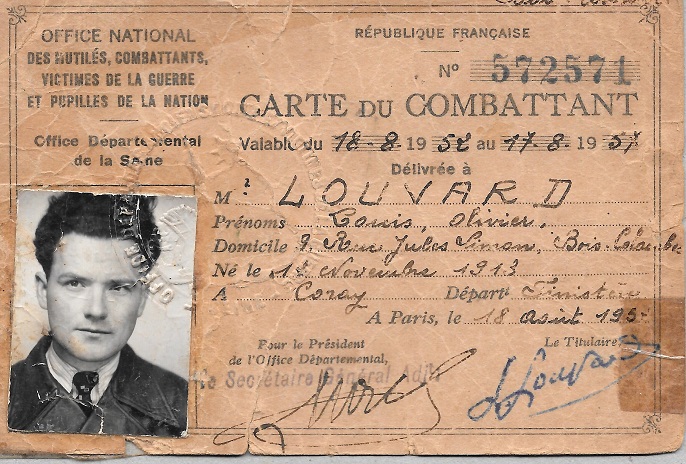 OFFICE NATIONAL
DES MUTILÉS, COMBATTANTS,
VICTIMES DE LA GUERRE
ET PUPILLES DE LA NATION
Office Départemental
de la Seine
RÉPUBLIQUE FRANÇAISE
No 572571
CARTE DU COMBATTANT
Valable du 18-8 1952 au 17.8.1957
Délivrée à
M r LOUVARD
Prénoms Louis, Olivier,
Domicile 9. Rue Jules Simon, Bois-Colombes
Né le 12 Novembre 1913
A Coray Départt Finistère
A Paris, le 18 août 195
Pour le Président
de l'Office Départemental,
Le Titulaire,
Le Secrétaire Général Adjt
L. Louvard